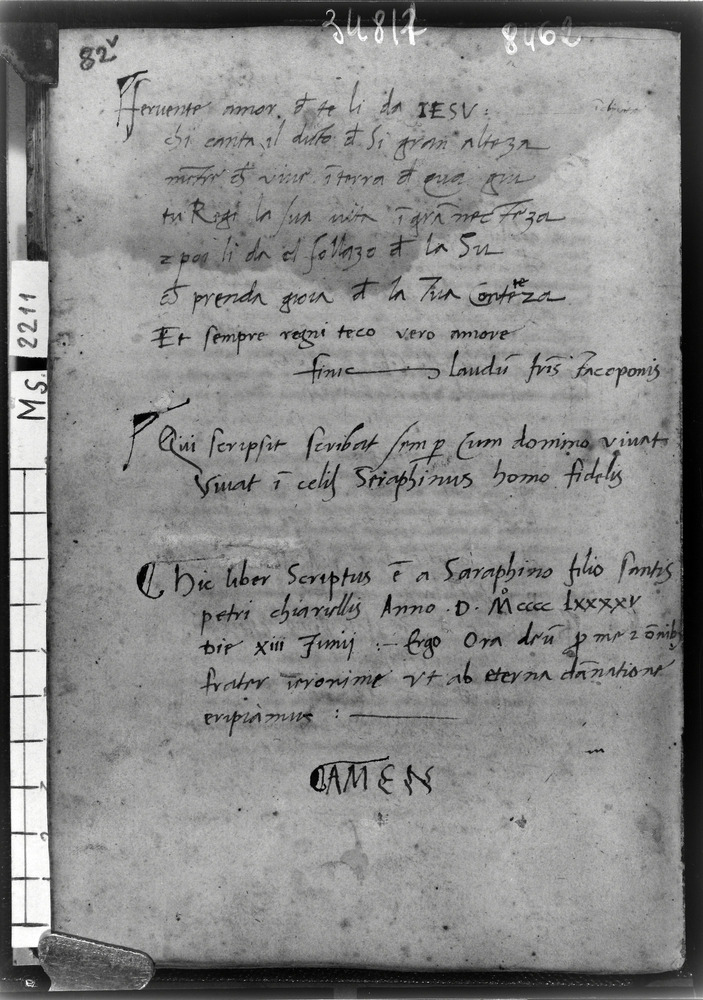 34817 8462
82v
Fervente amor đ te li da IESV:
chi canta il duto đ si gran alteza
mētre vive ī terra đ qua giu
tu Regi la sua vita ī grā netteza
z poi li da el sollazo đ la Su
prenda gioia đ la Tua Conteza
Et sempre regni teco vero amore
finis laudū fris Jacoponis
Qui scripsit scribat semp Cum domino vivat
Vivat ī celis Seraphinus homo fidelis
Hic liber Scriptus ē a Saraphino filio santis
petri chiarellis Anno .D. Mcccc lxxxxv
Die xiii Junij :- Ergo Ora deū p me z oīnib
frater ieronime vt ab eterna dānatione
eripiamus :
AMEN
MS. 2211